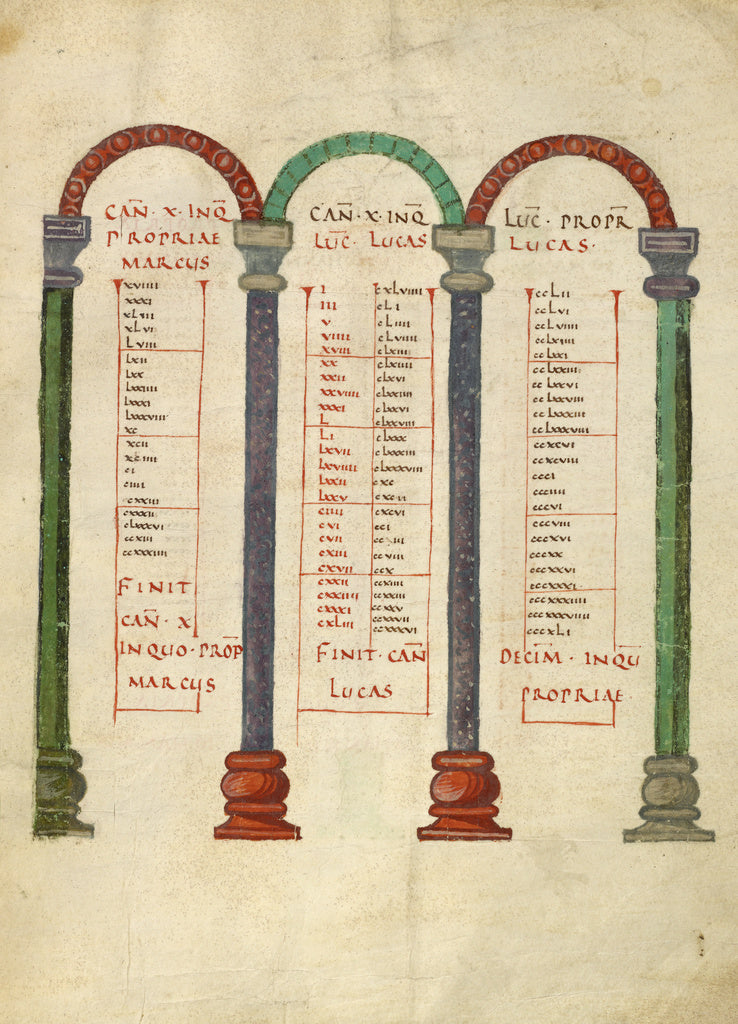 CAN̄ · X · INQ̄
PROPRIAE
MARCUS
xviiii
xxxi
xLiii
xLvi
Lviii
Lxii
Lxx
Lxxiiii
Lxxxi
Lxxxviii
xc
xcii
xciiii
ci
ciiii
cxxiii
cxxxii
cLxxxvi
ccxiii
ccxxxiiii
FINIT
CAN̄ · X
INQUO · PROP̄
MARCUS
CAN̄ · X · INQ̄
LUC̄ · LUCAS
I cxLviiii
III cLi
v cLiiii
viiii cLviiii
xviii cLxiii
xx cLxiiii
xxii cLxvi
xxviiii cLxxiiii
xxxi cLxxvi
L cLxxviiii
Li cLxxx
Lxvii cLxxxiii
Lxviiii cLxxxviii
Lxxii cxc
Lxxv cxcii
ciiii cxcvi
cvi cci
cvii
cxiii ccviii
cxvii ccx
cxxii ccxiiii
ccxxiii
cxxxi ccxxv
cxLiii ccxxvii
ccxxxvi
FINIT · CAN̄
LUCAS
LUC̄ · PROPR̄
LUCAS ·
ccLii
ccLvi
ccLviiii
ccLxiiii
ccLxxi
ccLxxiii
ccLxxvi
ccLxxviii
ccLxxxiii
ccLxxxviii
ccxcvi
ccxcviii
ccci
ccciiii
cccvi
cccviii
cccxvi
cccxx
cccxxvi
cccxxxi
cccxxxiiii
cccxxxviiii
cccxLi
DECIM̄ · INQŪ
PROPRIAE